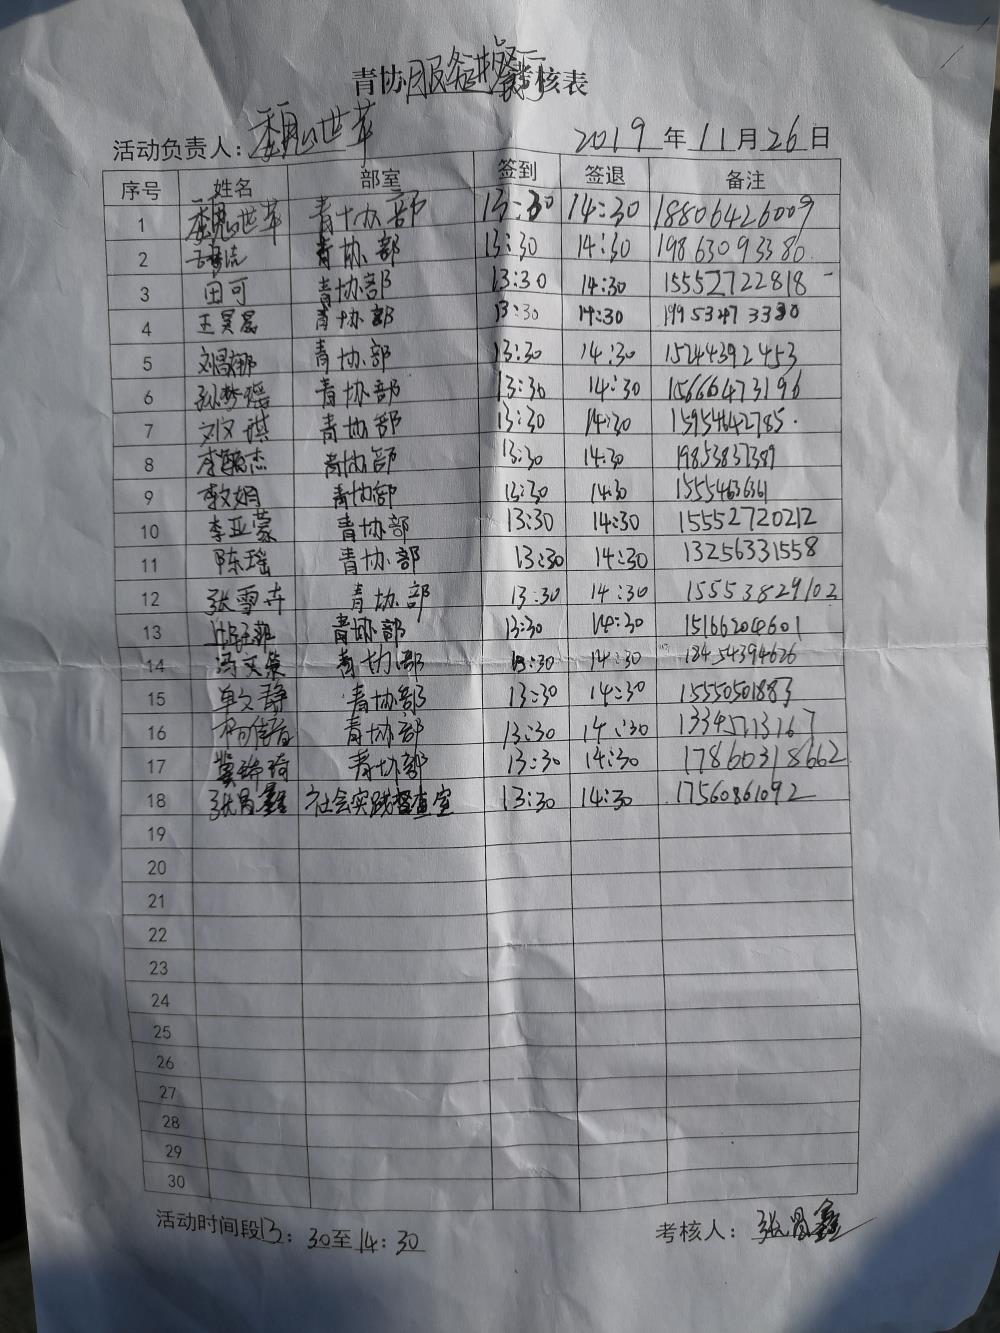 青协服务进餐厅考核表
活动负责人：魏世苹 2019年11月26日
序号 姓名 部室 签到 签退 备注
1 魏世苹 青协部 13:30 14:30 18806426009
2 青协部 13:30 14:30 19863093380
3 田可 青协部 13:30 14:30 15552722818
4 王昊晨 青协部 13:30 14:30 19953473330
5 刘昌娜 青协部 13:30 14:30 15244392453
6 孙梦瑶 青协部 13:30 14:30 15666473196
7 刘文琪 青协部 13:30 14:30 15954642785
8 青协部 13:30 14:30 19853837387
9 敬文娟 青协部 13:30 14:30
10 李亚蒙 青协部 13:30 14:30 15552720212
11 陈瑶 青协部 13:30 14:30 13256331558
12 张雪卉 青协部 13:30 14:30 15553829102
13 青协部 13:30 14:30 15166204601
14 冯文荣 青协部 13:30 14:30 18454394626
15 单文静 青协部 13:30 14:30 15550501883
16 青协部 13:30 14:30 13345713167
17 冀锦琦 青协部 13:30 14:30 17860318662
18 张昌鑫 社会实践督查室 13:30 14:30 17560861092
19
20
21
22
23
24
25
26
27
28
29
30
活动时间段13：30至14：30 考核人：张昌鑫